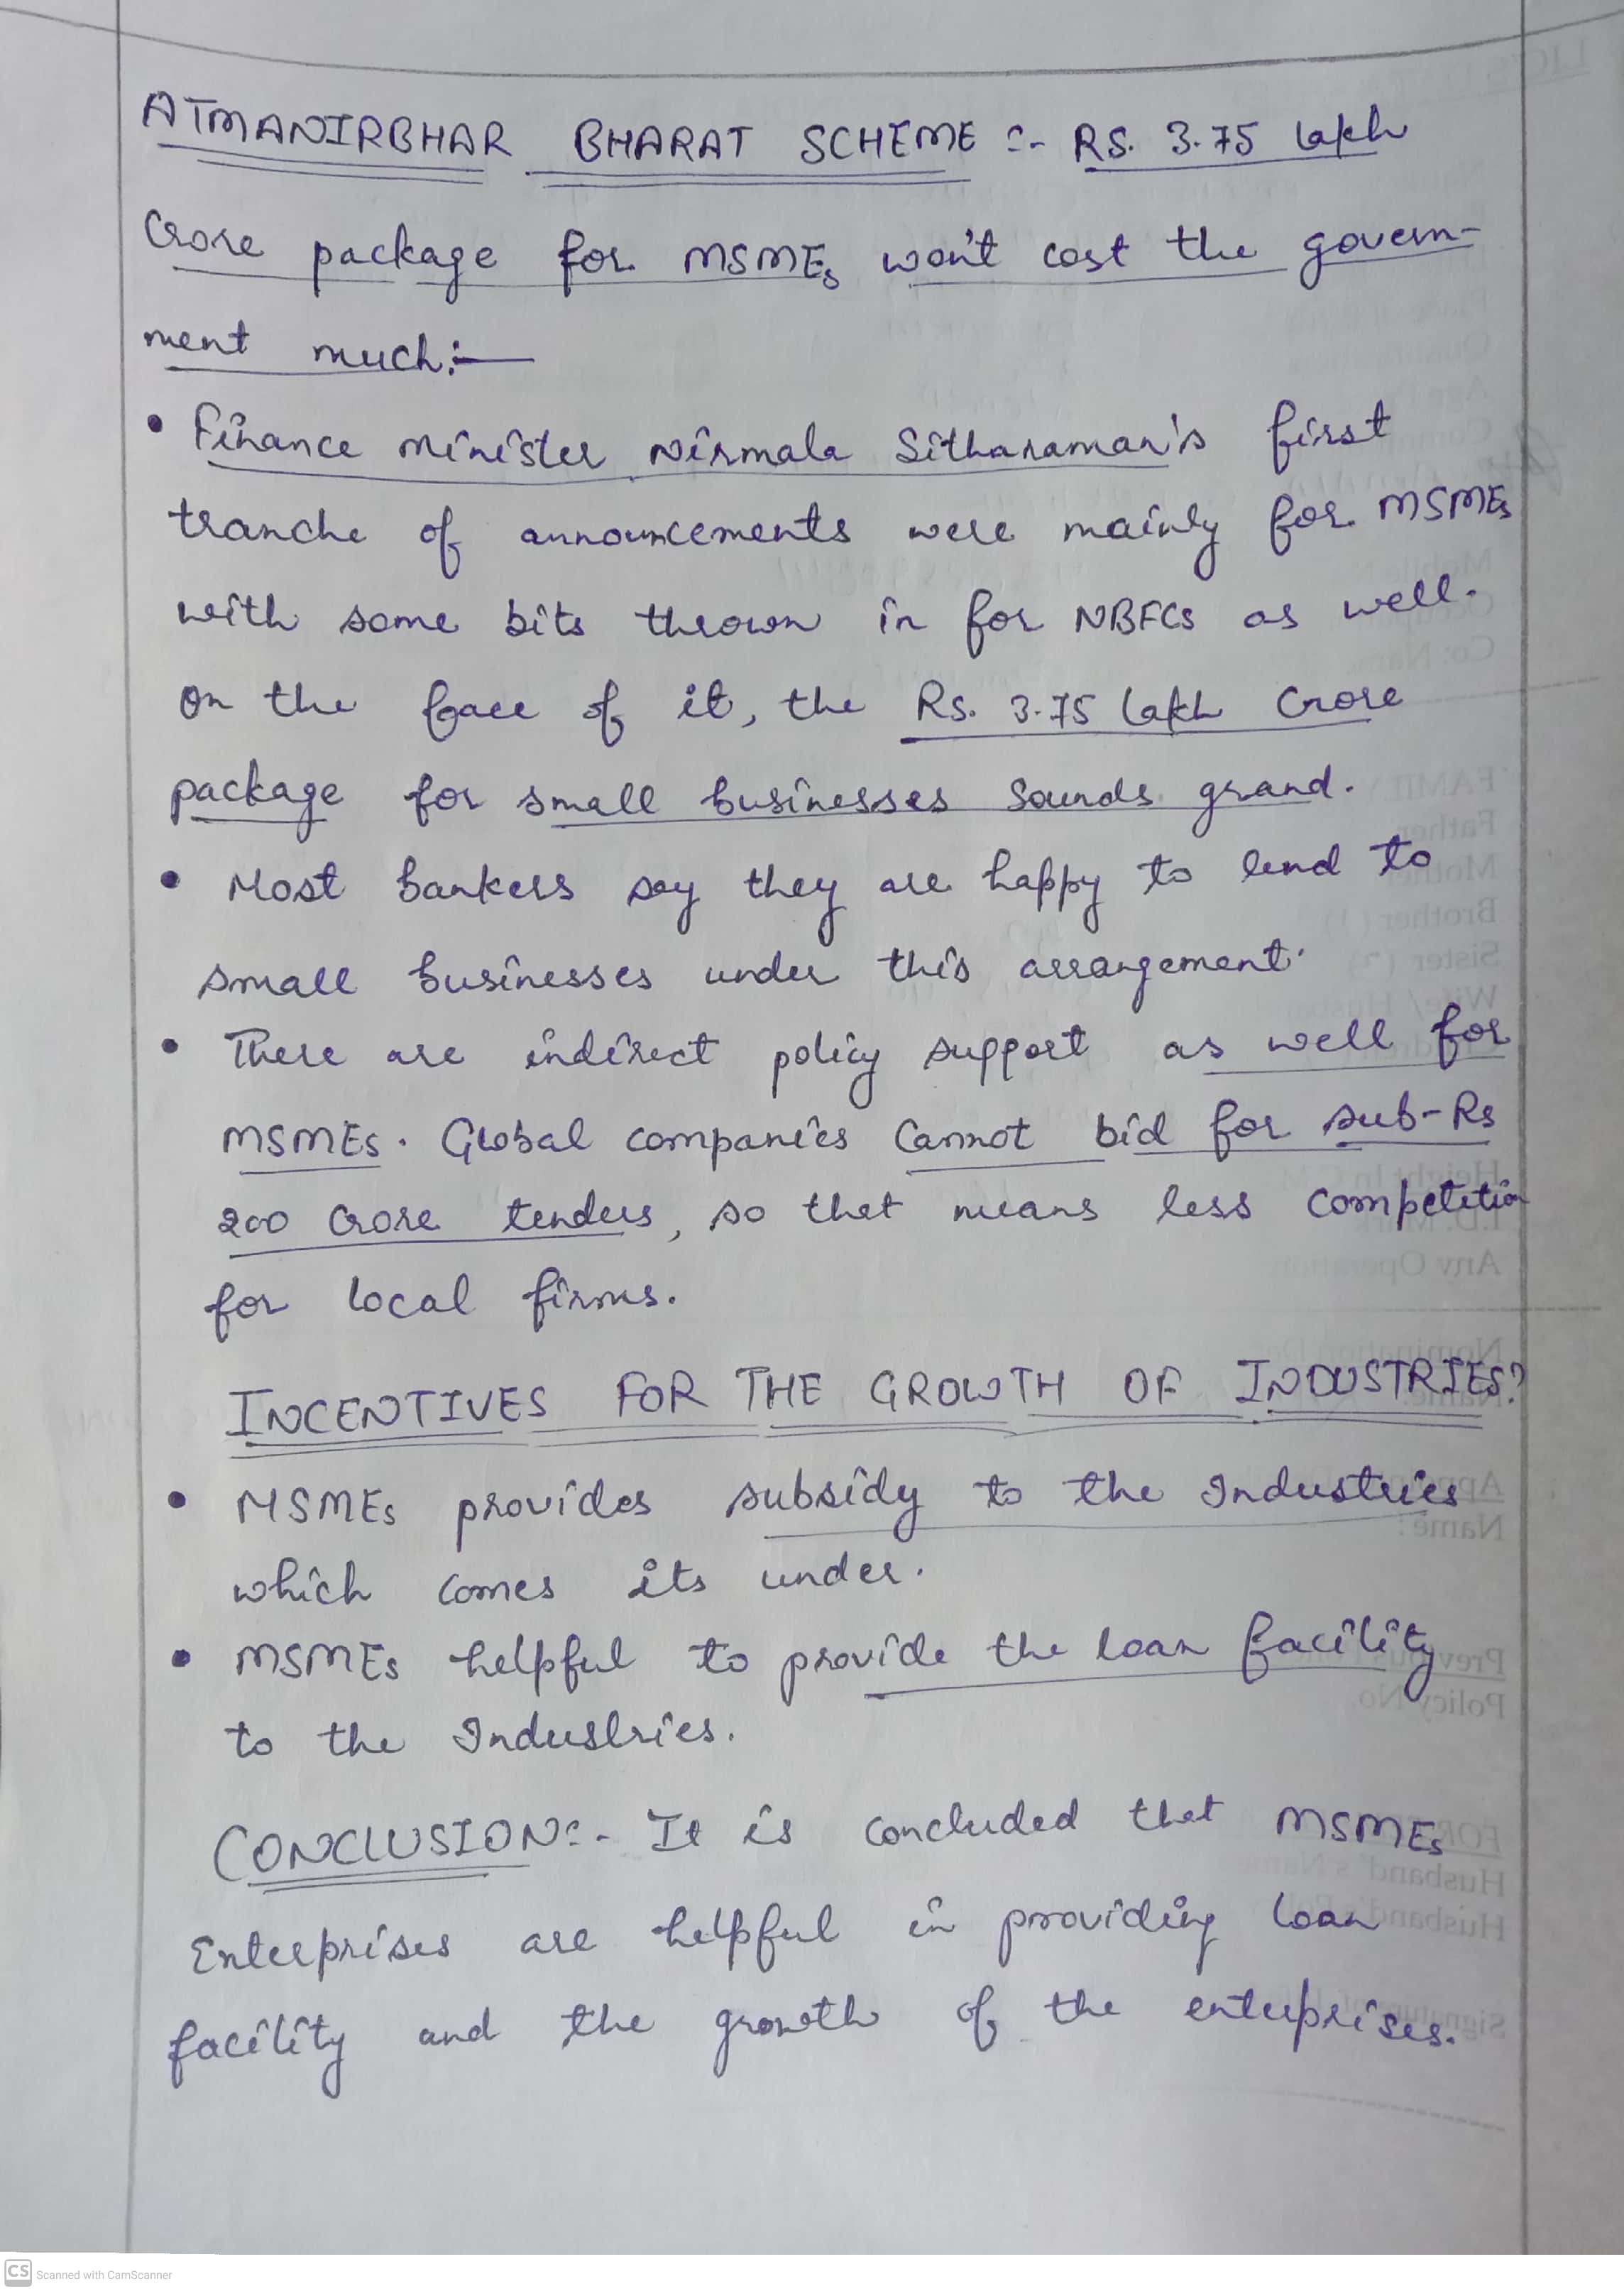 ATMANIRBHAR BHARAT SCHEME :- RS. 3.75 lakh
Crore package for MSMEs won't cost the govern-
ment much:-
• Finance minister Nirmala Sitharaman's first
tranche of announcements were mainly for MSMEs
with some bits thrown in for NBFCs as well.
On the face of it, the Rs. 3.75 lakh Crore
package for small businesses sounds grand.
• Most bankers say they are happy to lend to
small businesses under this arrangement.
• There are indirect policy support as well for
MSMEs. Global companies cannot bid for sub-Rs
200 Crore tenders, so that means less competition
for local firms.
INCENTIVES FOR THE GROWTH OF INDUSTRIES?
• MSMEs provides subsidy to the Industries
which comes its under.
• MSMEs helpful to provide the loan facility
to the Industries.
CONCLUSION:- It is concluded that MSMEs
Enterprises are helpful in providing loan
facility and the growth of the enterprises.
CS Scanned with CamScanner